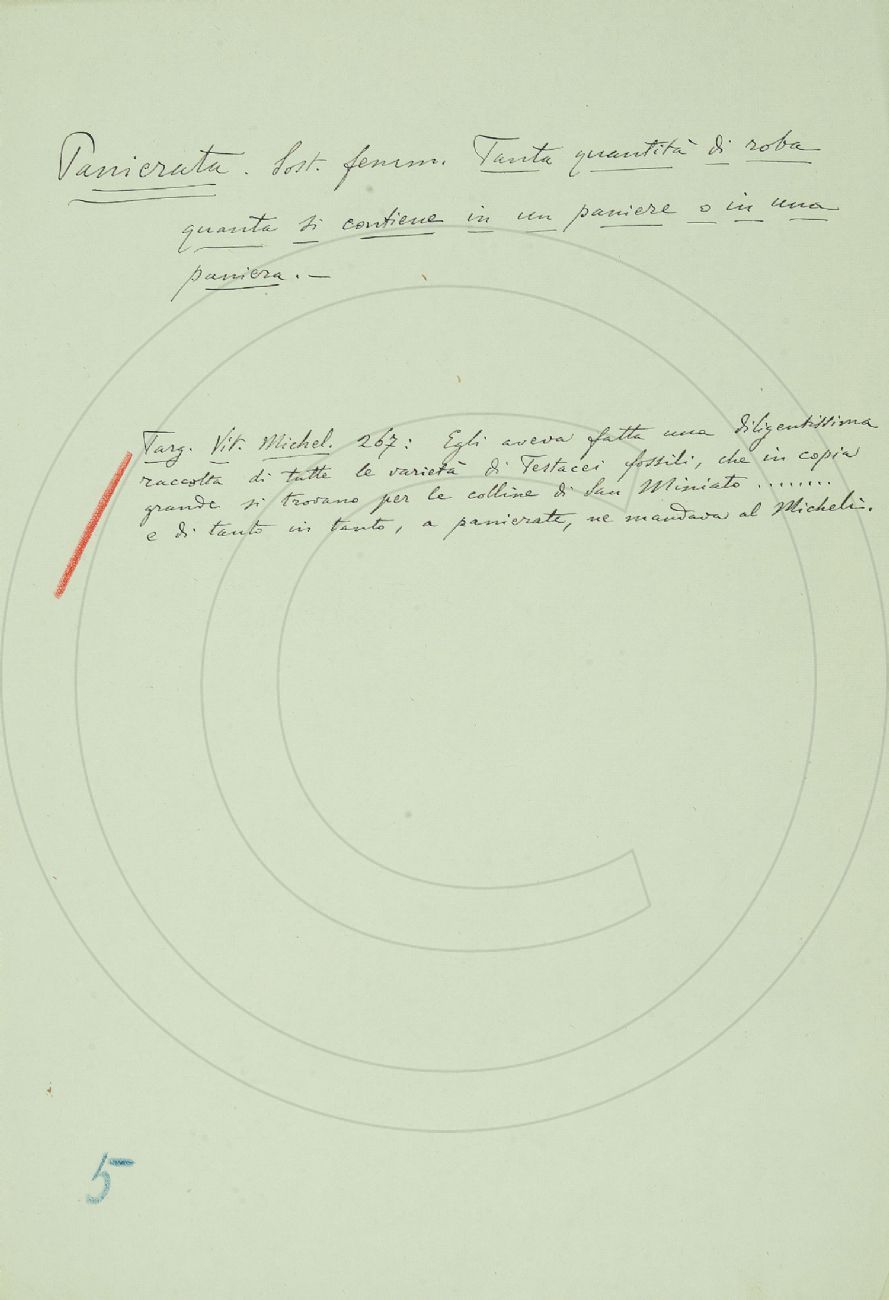 Panierata. Sost. femm. Tanta quantità di roba
quanta si contiene in un paniere o in una
paniera. —
Targ. Vit. Michel. 267: Egli aveva fatta una diligentissima
raccolta di tutte le varietà di Testacei fossili, che in copia
grande si trovano per le colline di San Miniato ........
e di tanto in tanto, a panierate, ne mandava al Micheli.
5